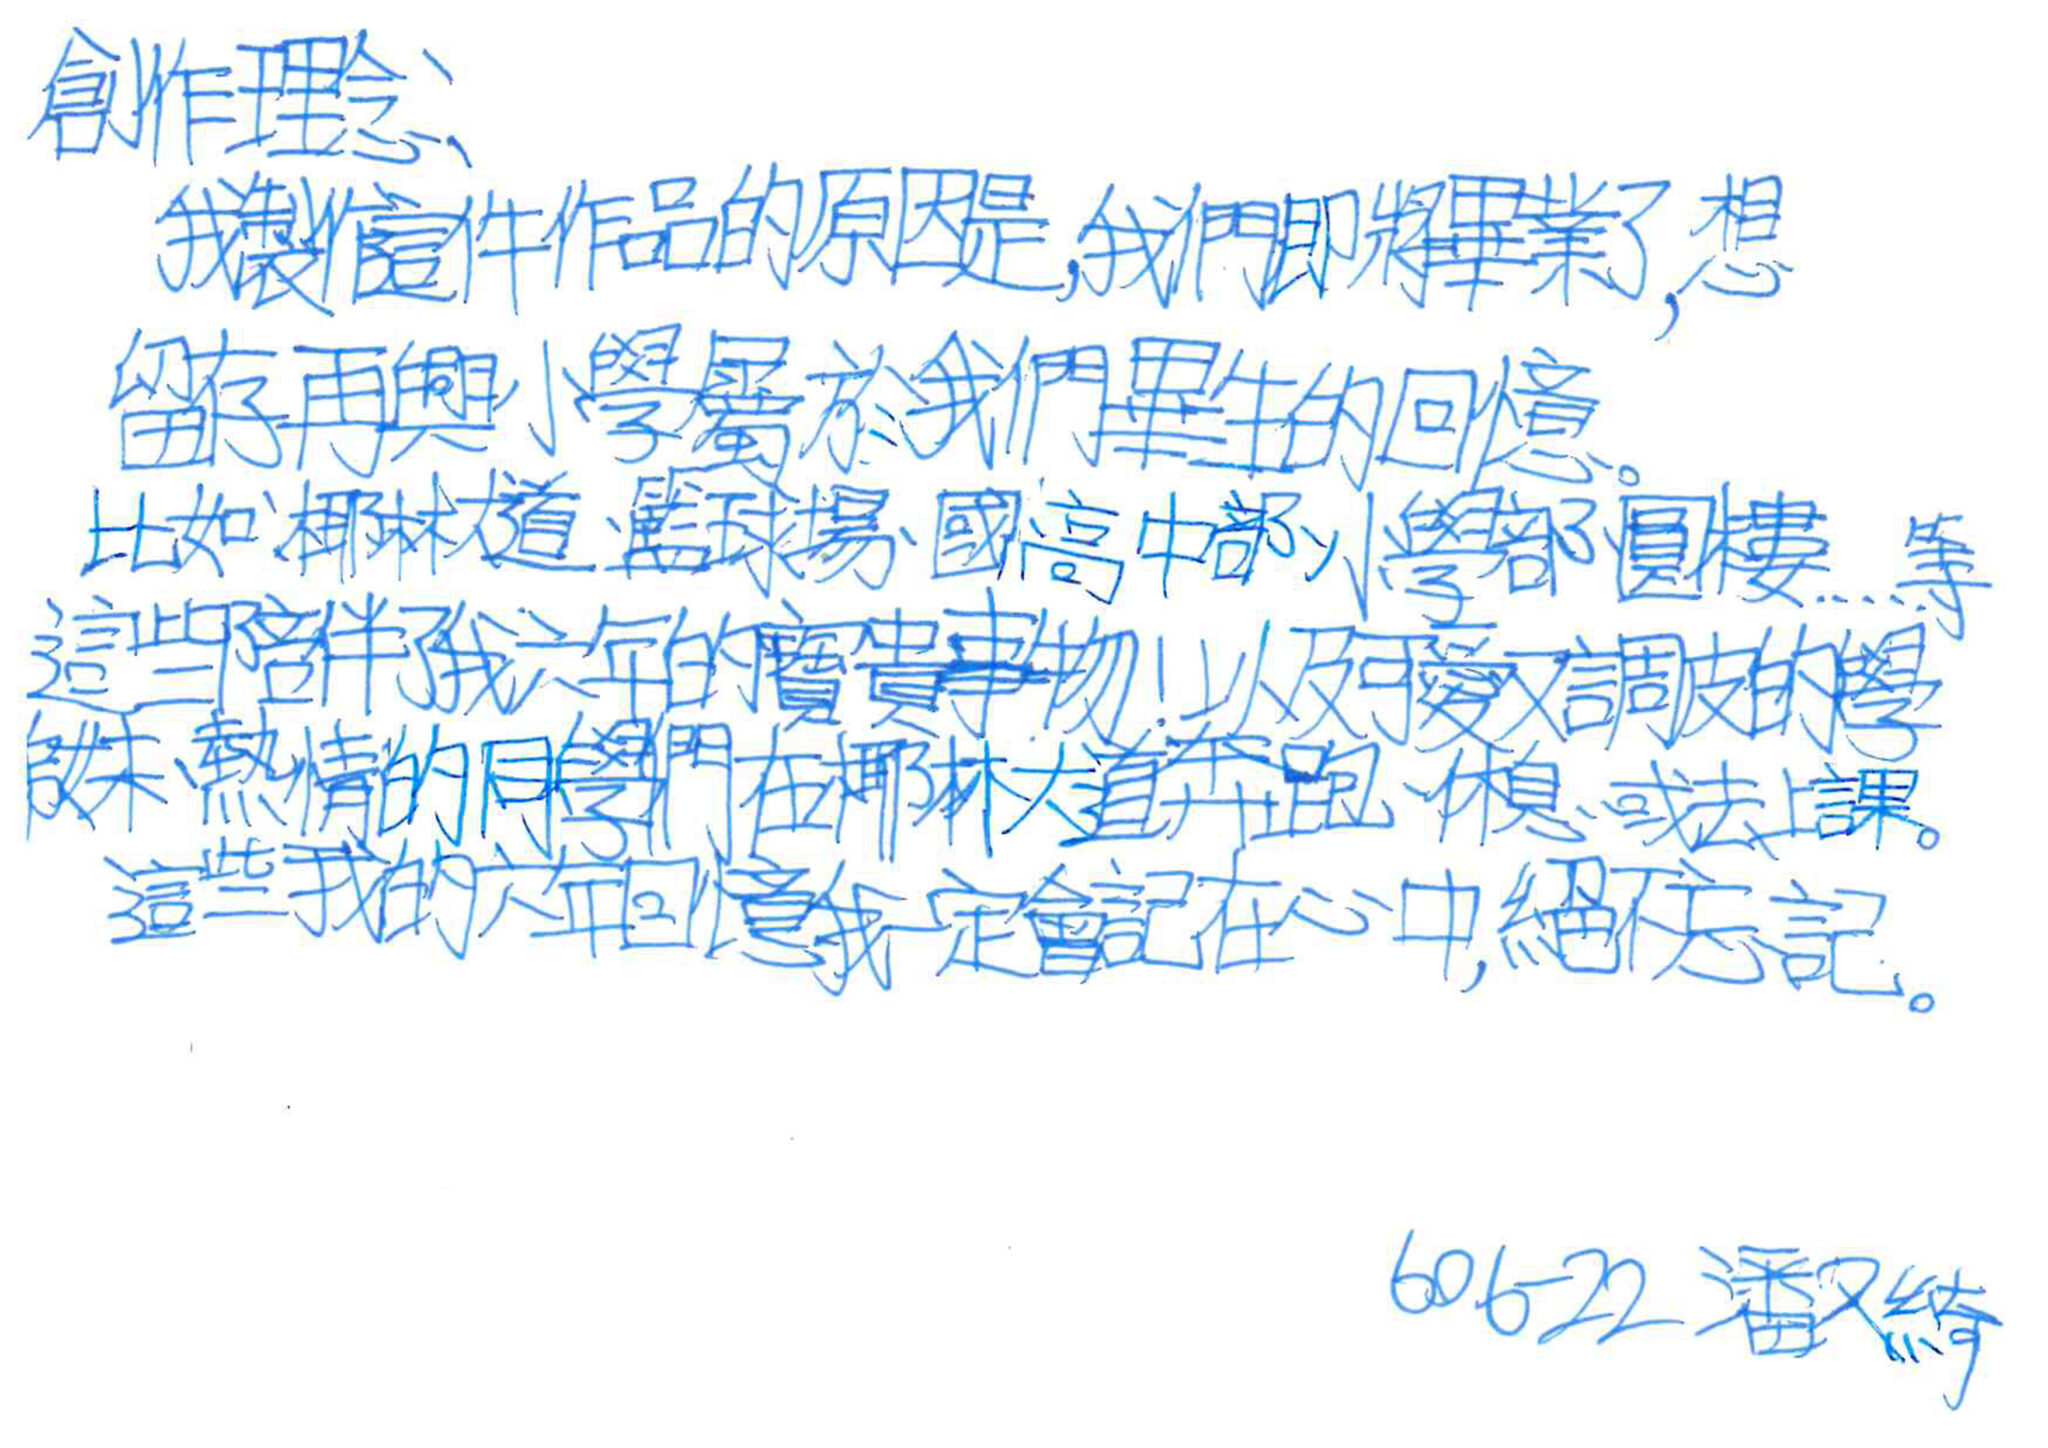 創作理念:
我製作這件作品的原因是,我們即將畢業了,想
留存再興小學屬於我們畢生的回憶。
比如:椰林大道、籃球場、國高中部、小學部、圓樓......等
這些陪伴了我六年的寶貴事物!以及可愛又調皮的學
弟妹、熱情的同學們在椰林大道奔跑、休息、或去上課。
這些我的六年回憶我一定會記在心中,絕不忘記。
606-22 潘又綺